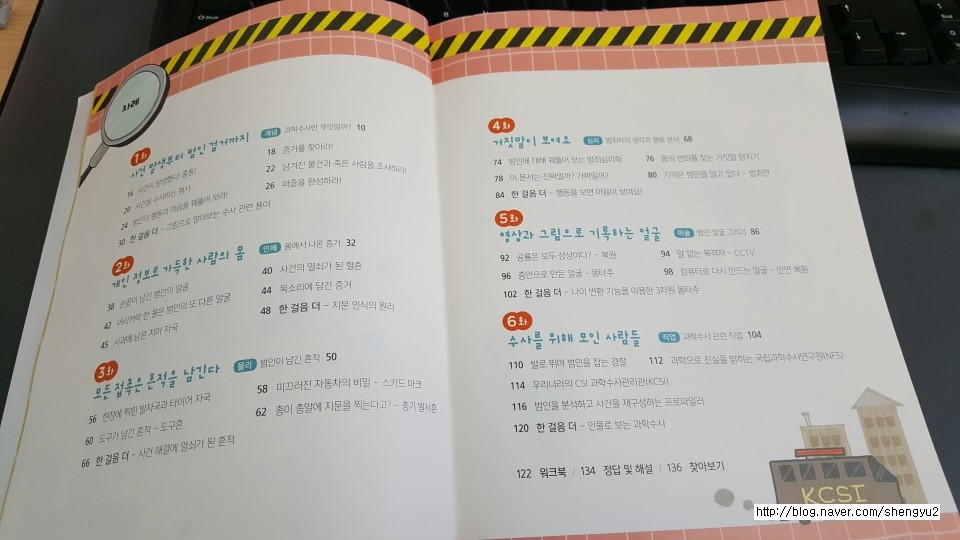 차례
1화
사건 발생부터 범인 검거까지 개념 과학수사란 무엇일까? 10
16 사건이 발생했다! 출동!
18 증거를 찾아라!
20 사건을 수사하는 형사
22 남겨진 물건과 죽은 사람을 조사하라!
24 범인의 행동과 마음을 꿰뚫어 보라!
26 퍼즐을 완성하라!
30 한 걸음 더 - 그림으로 알아보는 수사 관련 용어
2화
개인 정보로 가득한 사람의 몸 인체 몸에서 나온 증거 32
38 손끝이 남긴 범인의 얼굴
40 사건의 열쇠가 된 혈흔
42 머리카락 한 올은 범인의 또 다른 얼굴
44 목소리에 담긴 증거
45 사과에 남은 치아 자국
48 한 걸음 더 - 지문 인식의 원리
3화
모든 접촉은 흔적을 남긴다 물리 범인이 남긴 흔적 50
56 현장에 찍힌 발자국과 타이어 자국
58 미끄러진 자동차의 비밀 - 스키드 마크
60 도구가 남긴 흔적 - 도구흔
62 총이 총알에 지문을 찍는다고? - 총기 발사흔
66 한 걸음 더 - 사건 해결에 열쇠가 된 흔적
4화
거짓말이 보여요 심리 범죄자의 생각과 행동 분석 68
74 범인에 대해 꿰뚫어 보는 범죄심리학 76 몸의 변화를 찾는 거짓말 탐지기
78 이 문서는 진짜일까? 가짜일까? 80 기억은 범인을 알고 있다 - 법최면
84 한 걸음 더 - 행동을 보면 마음이 보여요!
5화
영상과 그림으로 기록하는 얼굴 미술 범인 얼굴 그리기 86
92 공룡은 모두 상상이다? - 복원 94 말 없는 목격자 - CCTV
96 증언으로 만든 얼굴 - 몽타주 98 컴퓨터로 다시 만드는 얼굴 - 안면 복원
102 한 걸음 더 - 나이 변환 기능을 이용한 3차원 몽타주
6화
수사를 위해 모인 사람들 직업 과학수사 관련 직업 104
110 발로 뛰며 범인을 잡는 경찰 112 과학으로 진실을 밝히는 국립과학수사연구원(NFS)
114 우리나라의 CSI 과학수사관리관(KCSI)
116 범인을 분석하고 사건을 재구성하는 프로파일러
120 한 걸음 더 - 인물로 보는 과학수사
122 워크북 / 134 정답 및 해설 / 136 찾아보기
KCSI
http://blog.naver.com/shengyu2